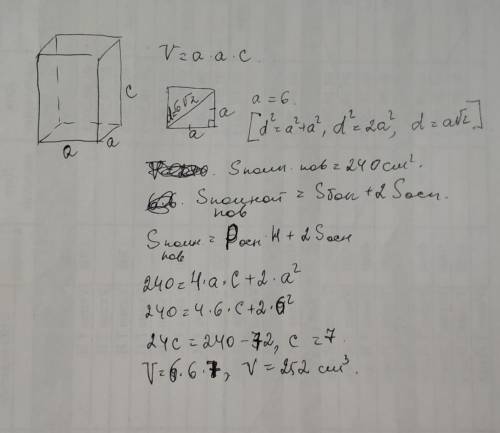 V = a · a · c.
c
a
a
d=6√2
a
a
a = 6.
[d²=a²+a², d²=2a², d=a√2]
Sполн. пов = 240 см².
Sполной пов = Sбок + 2Sосн.
Sполн. пов = Pосн · H + 2Sосн
240 = 4·a·c + 2·a²
240 = 4·6·c + 2·6²
24c = 240 - 72, c = 7.
V = 6·6·7, V = 252 см³.